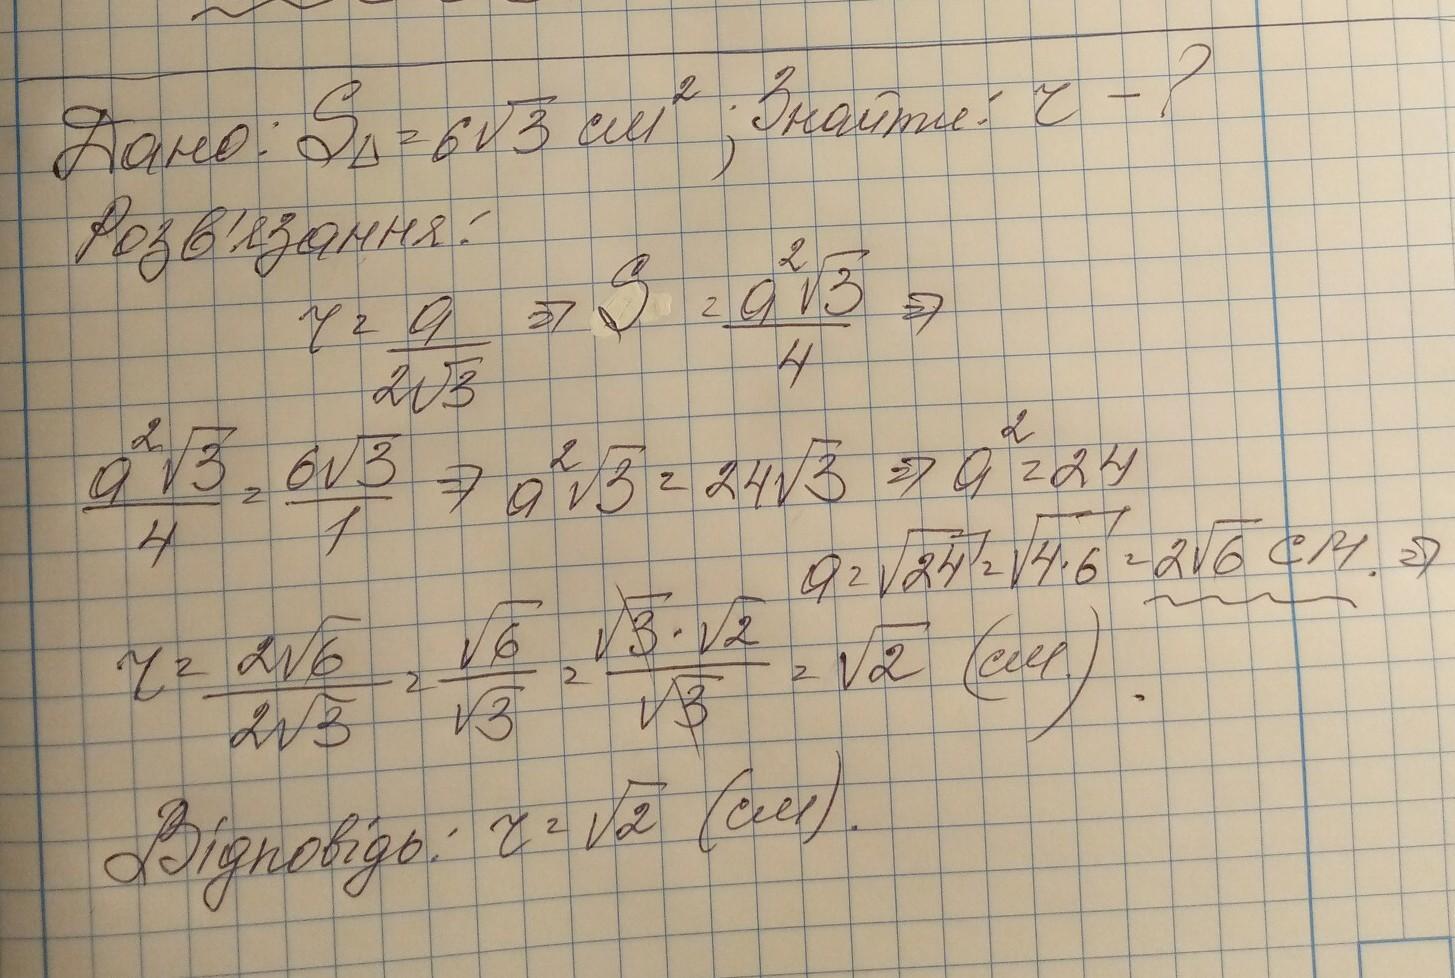 Дано: S△ = 6√3 см²; Знайти: r - ?
Розв'язання:
r = a/(2√3) ⇒ S = a²√3/4 ⇒
a²√3/4 = 6√3/1 ⇒ a²√3 = 24√3 ⇒ a² = 24
a = √24 = √4·6 = 2√6 см. ⇒
r = 2√6/2√3 = √6/√3 = √3·√2/√3 = √2 (см).
Відповідь: r = √2 (см).